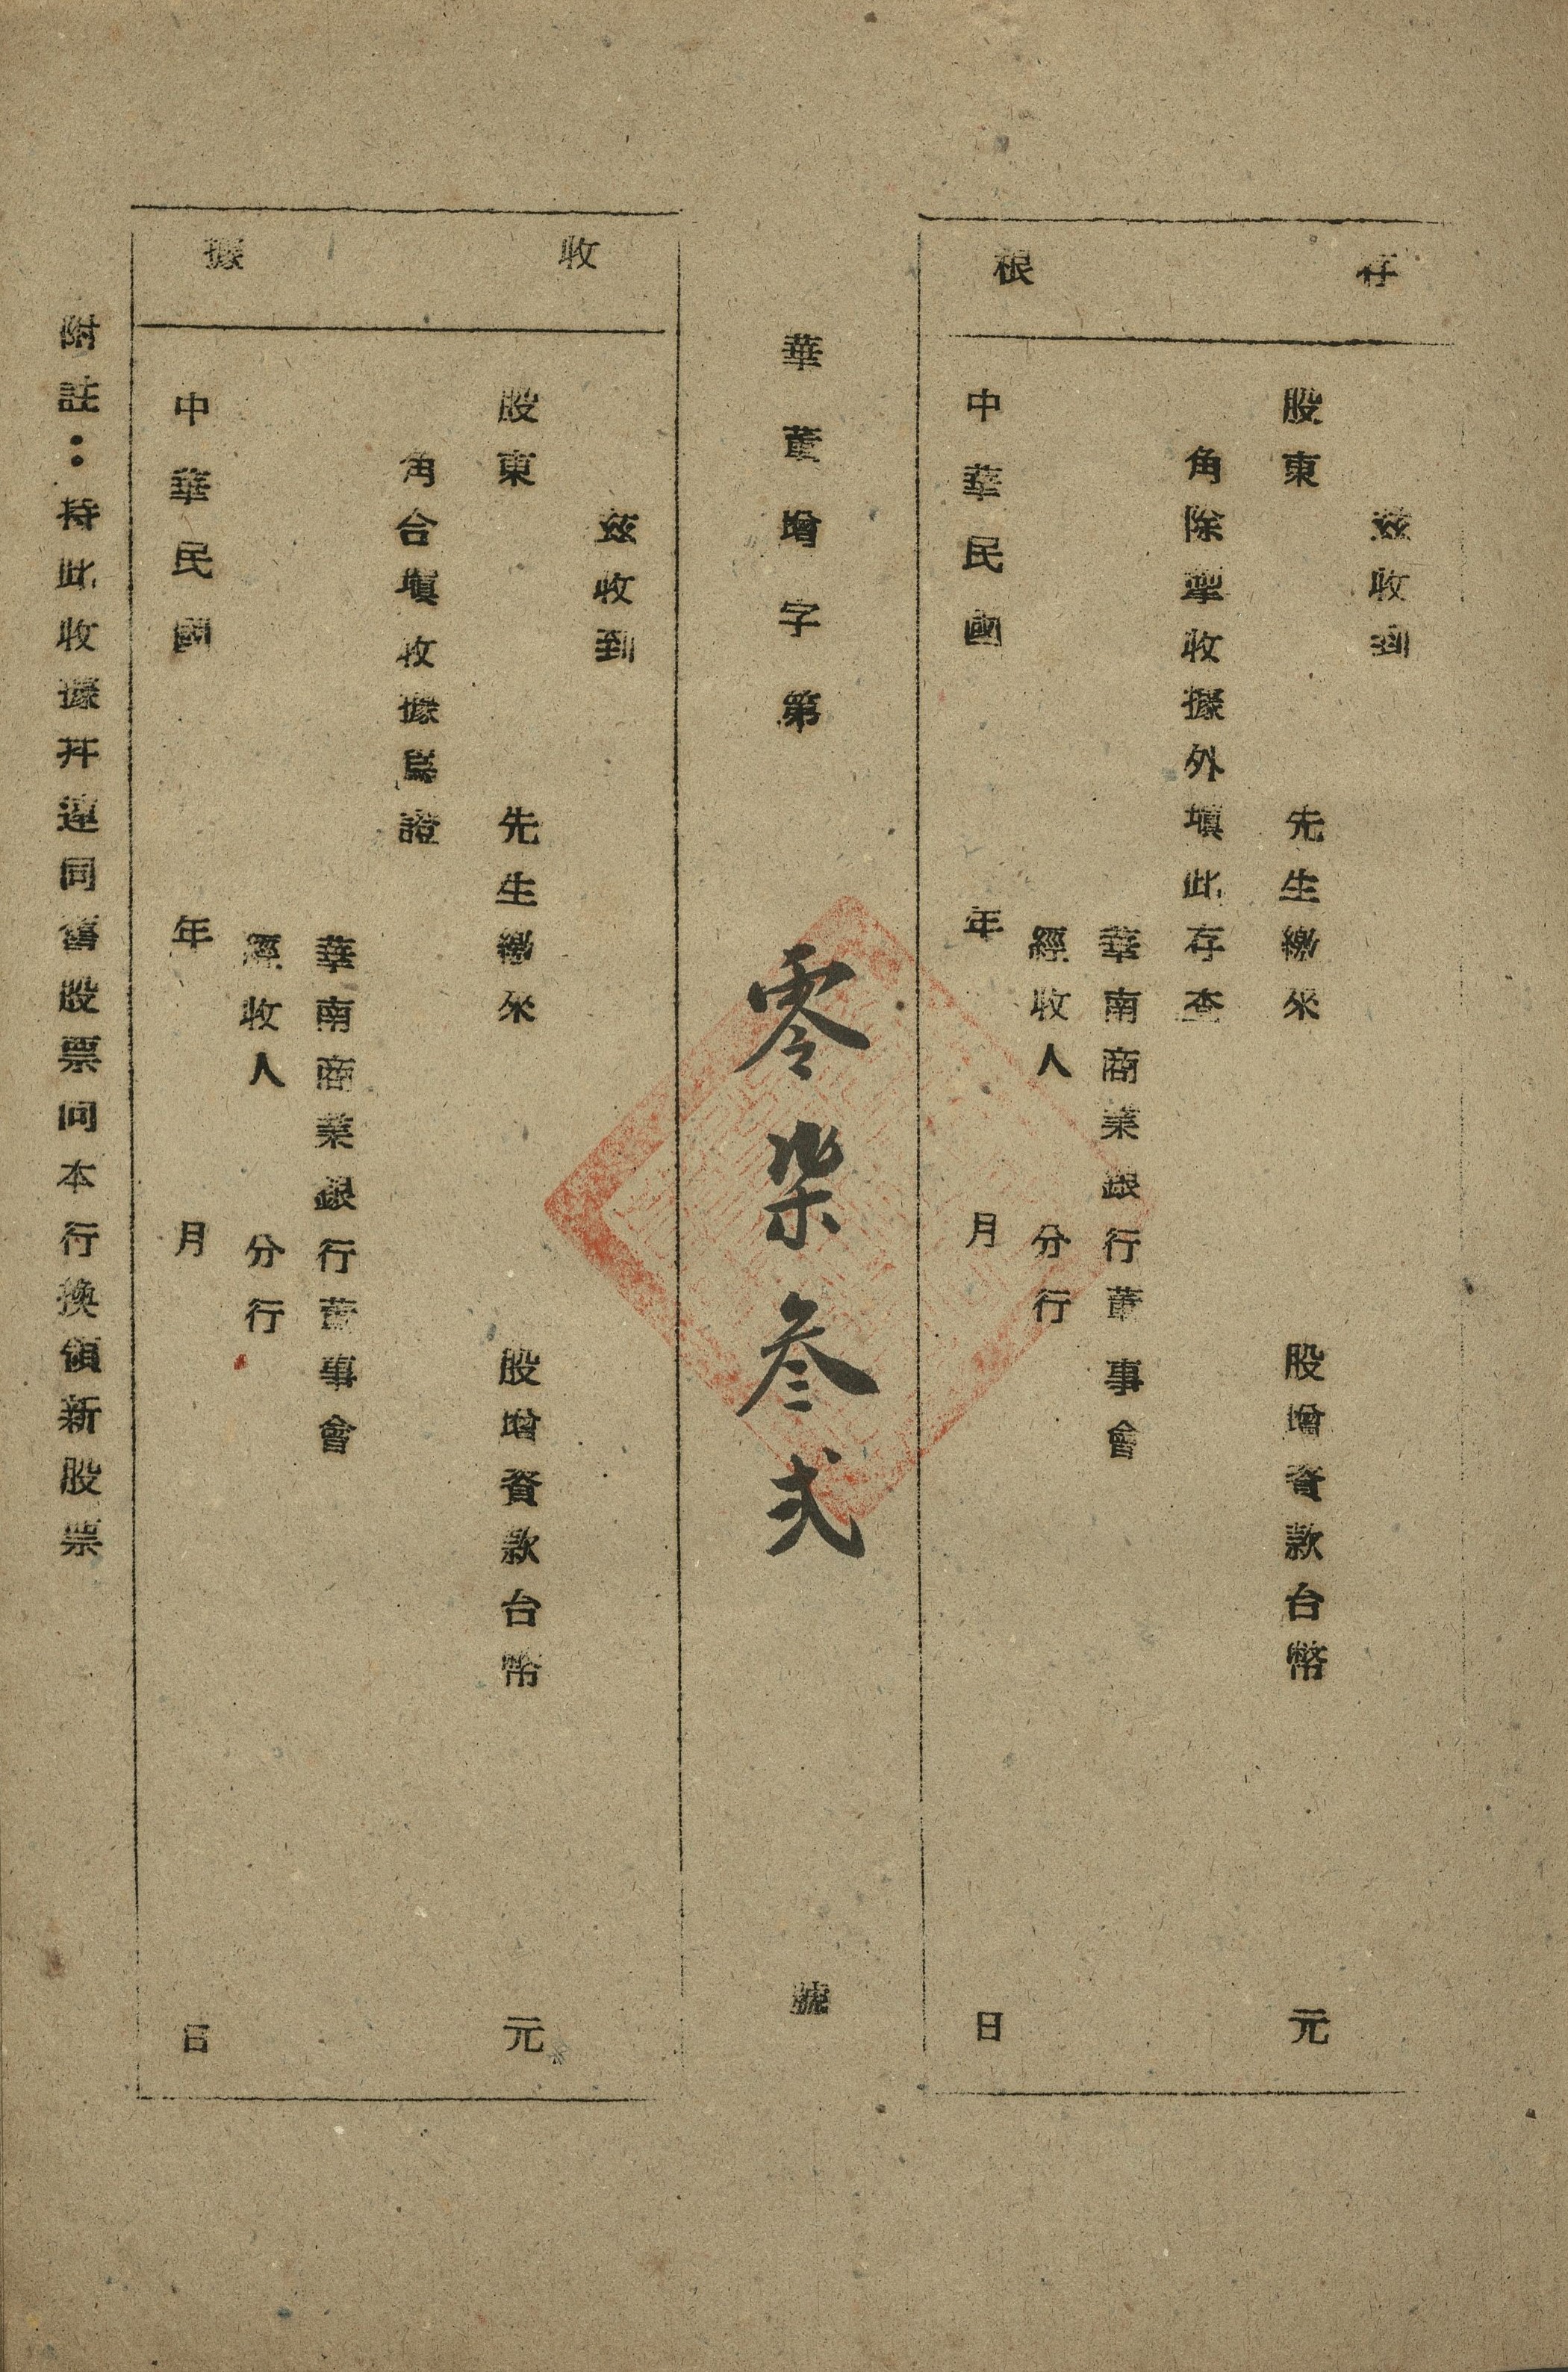 存根
茲收到
股東 先生繳來 股增資款台幣 元
角除掣收據外填此存查
華南商業銀行董事會
經收人 分行
中華民國 年 月 日
華董增字第 零柒叁弍 號
收據
茲收到
股東 先生繳來 股增資款台幣 元
角合填收據為證
華南商業銀行董事會
經收人 分行
中華民國 年 月 日
附註：持此收據幷連同舊股票向本行換領新股票